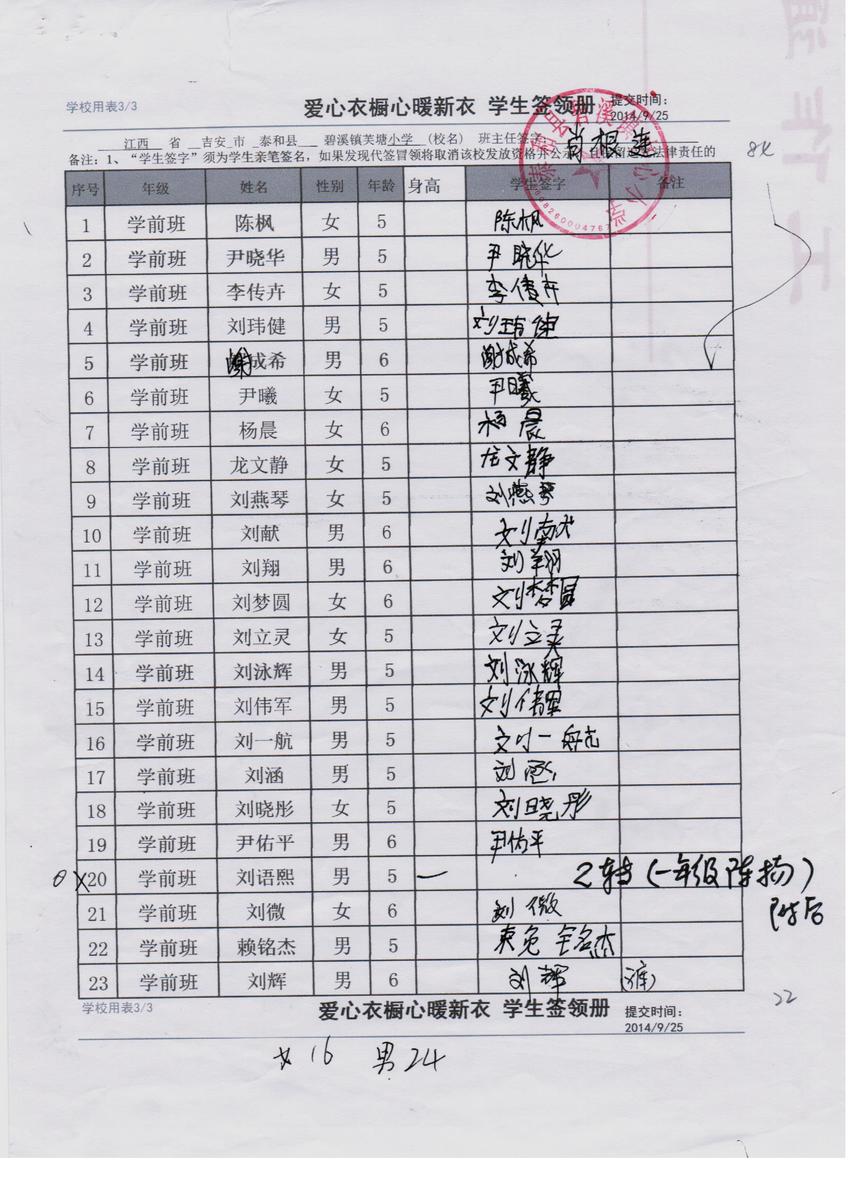 学校用表3/3
爱心衣橱心暖新衣 学生签领册
提交时间：
2014/9/25
江西 省 吉安 市 泰和县 碧溪镇芙塘小学 （校名） 班主任签字 肖根连
备注：1、“学生签字”须为学生亲笔签名，如果发现代签冒领将取消该校发放资格并公示，且保留追究法律责任的
序号 年级 姓名 性别 年龄 身高 学生签字 备注
1 学前班 陈枫 女 5 陈枫
2 学前班 尹晓华 男 5 尹晓华
3 学前班 李传卉 女 5 李传卉
4 学前班 刘玮健 男 5 刘玮健
5 学前班 谢成希 男 6 谢成希
6 学前班 尹曦 女 5 尹曦
7 学前班 杨晨 女 6 杨晨
8 学前班 龙文静 女 5 龙文静
9 学前班 刘燕琴 女 5 刘燕琴
10 学前班 刘献 男 6 刘献
11 学前班 刘翔 男 6 刘翔
12 学前班 刘梦圆 女 6 刘梦圆
13 学前班 刘立灵 女 5 刘立灵
14 学前班 刘泳辉 男 5 刘泳辉
15 学前班 刘伟军 男 5 刘伟军
16 学前班 刘一航 男 5 刘一航
17 学前班 刘涵 男 5 刘涵
18 学前班 刘晓彤 女 5 刘晓彤
19 学前班 尹佑平 男 6 尹佑平
20 学前班 刘语熙 男 5 一 2转（一年级陈扬）
附后
21 学前班 刘微 女 6 刘微
22 学前班 赖铭杰 男 5 赖铭杰
23 学前班 刘辉 男 6 刘辉
学校用表3/3
爱心衣橱心暖新衣 学生签领册
提交时间：
2014/9/25
22
女16 男24